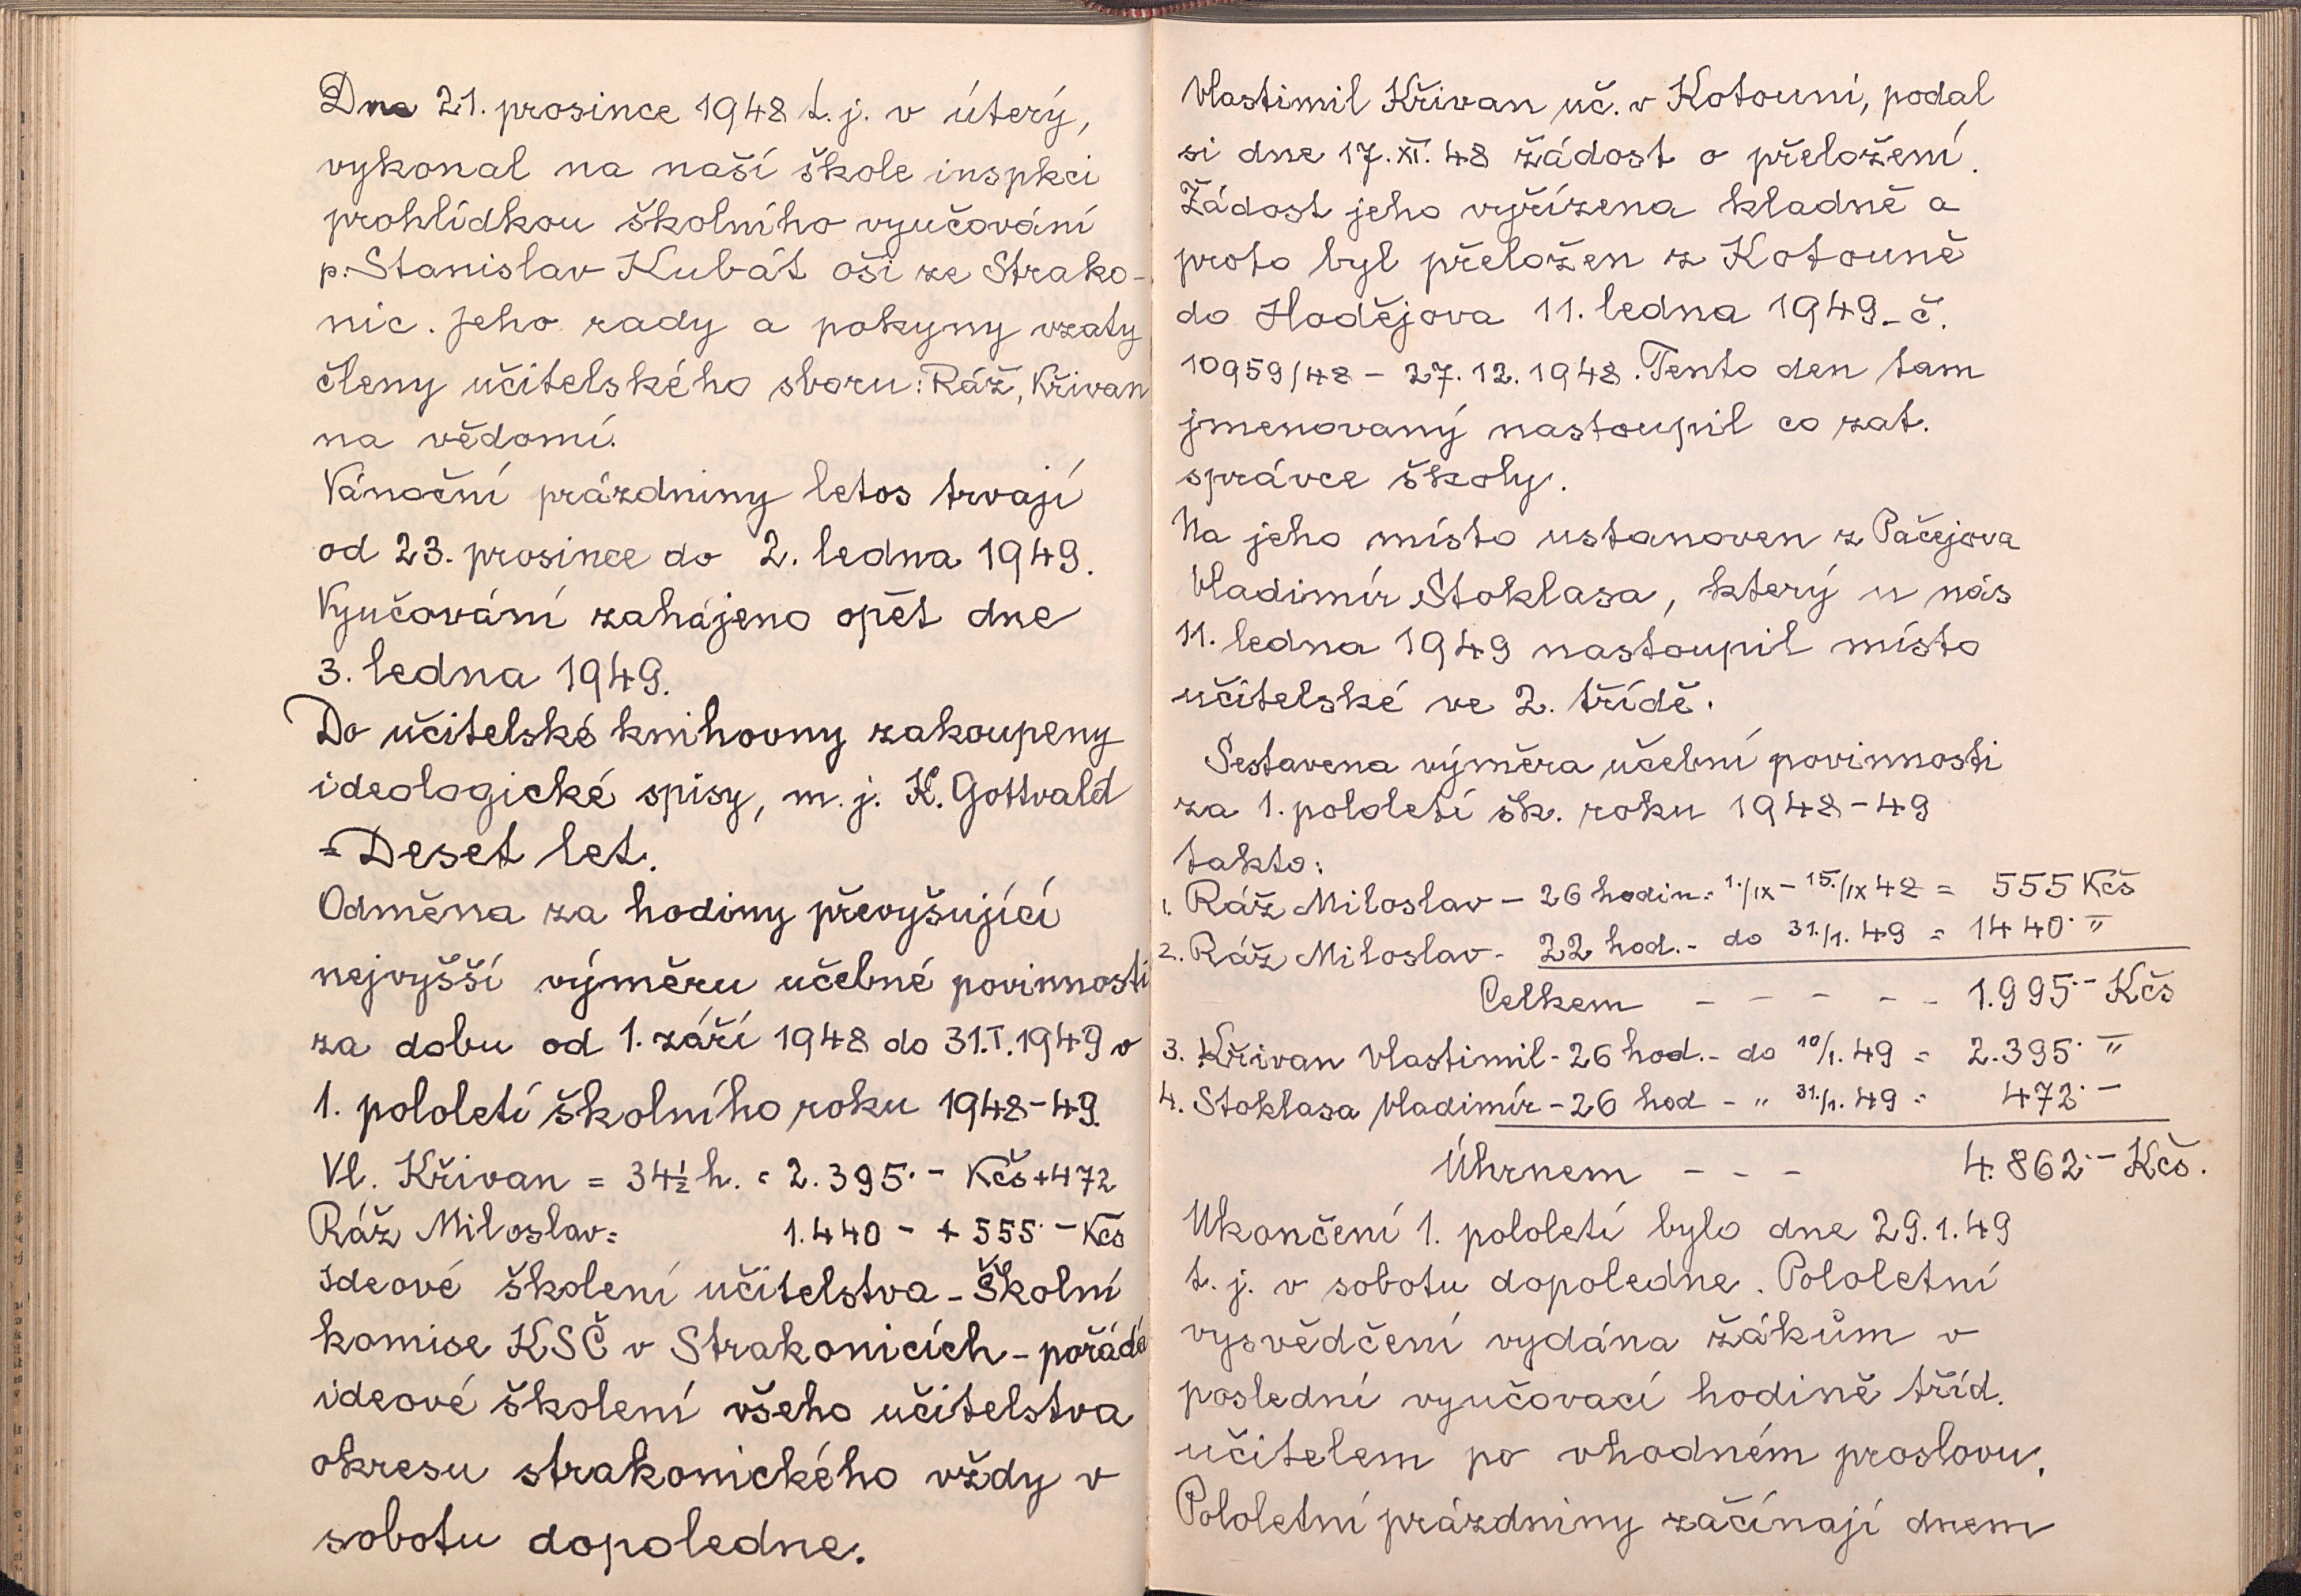 Dne 21. prosince 1948 t. j. v úterý,
vykonal na naší škole inspkci
prohlídkou školního vyučování
p. Stanislav Kubát oši ze Strako-
nic. Jeho rady a pokyny vzaty
členy učitelského sboru: Ráž, Křivan
na vědomí.
Vánoční prázdniny letos trvají
od 23. prosince do 2. ledna 1949.
Vyučování zahájeno opět dne
3. ledna 1949.
Do učitelské knihovny zakoupeny
ideologické spisy, m. j. K. Gottvald
= Deset let.
Odměna za hodiny převyšující
nejvyšší výměru učebné povinnosti
za dobu od 1. září 1948 do 31.I.1949 v
1. pololetí školního roku 1948-49.
Vl. Křivan = 34½ h. = 2.395.- Kčs+472
Ráž Miloslav = 1.440 - + 555.- Kčs
Ideové školení učitelstva - Školní
komise KSČ v Strakonicích - pořádá
ideové školení všeho učitelstva
okresu strakonického vždy v
sobotu dopoledne.
Vlastimil Křivan uč. v Kotouni, podal
si dne 17. XI. 48 žádost o přeložení.
Žádost jeho vyřízena kladně a
proto byl přeložen z Kotouně
do Hodějova 11. ledna 1949 - č.
10959/48 - 27. 12. 1948. Tento den tam
jmenovaný nastoupil co zat.
správce školy.
Na jeho místo ustanoven z Pačejova
Vladimír Stoklasa, který u nás
11. ledna 1949 nastoupil místo
učitelské ve 2. třídě.
Sestavena výměra učební povinnosti
za 1. pololetí šk. roku 1948-49
takto:
1. Ráž Miloslav - 26 hodin = 1./IX - 15./IX 48 = 555 Kčs
2. Ráž Miloslav - 22 hod. - do 31./1. 49 = 1440.- "
Celkem - - - - - 1.995.- Kčs
3. Křivan Vlastimil - 26 hod. - do 10/1. 49 = 2.395.- "
4. Stoklasa Vladimír - 26 hod - " 31./1. 49 = 472.-
Úhrnem - - - 4.862.- Kčs.
Ukončení 1. pololetí bylo dne 29.1.49
t. j. v sobotu dopoledne. Pololetní
vysvědčení vydána žákům v
poslední vyučovací hodině tříd.
učitelem po vhodném proslovu.
Pololetní prázdniny začínají dnem